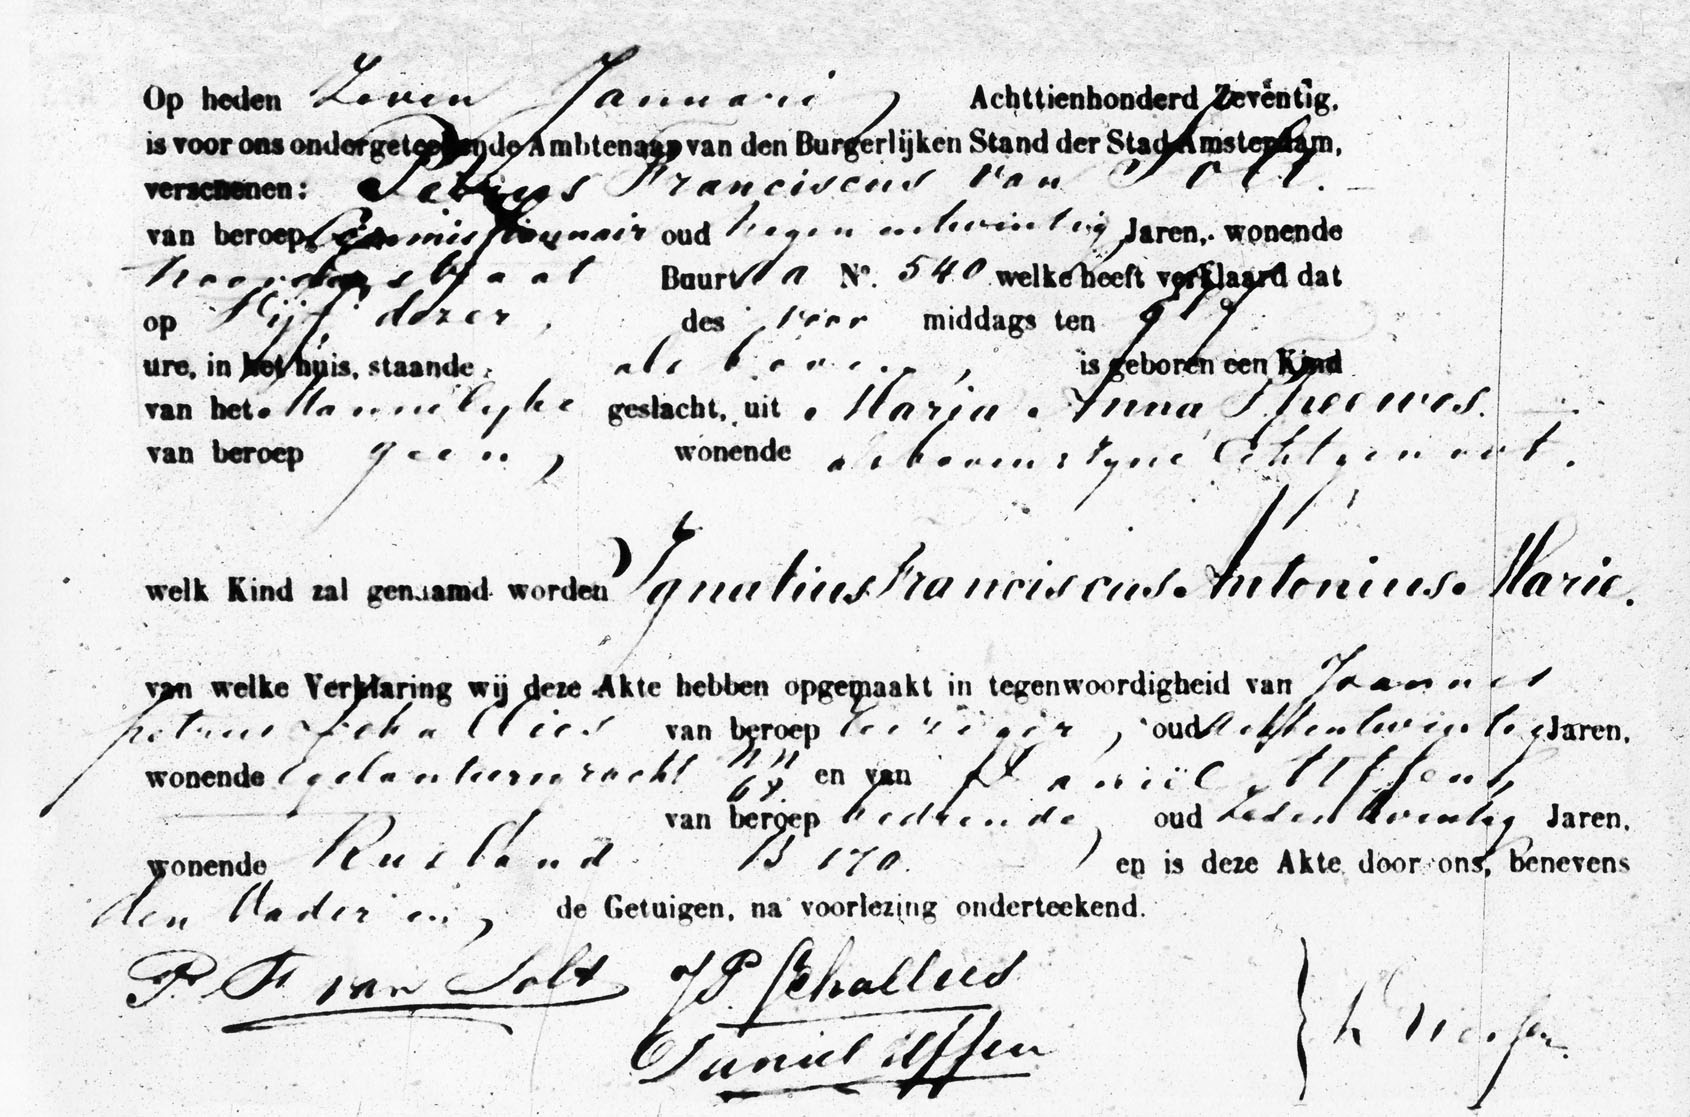 Op heden Zeven Januari, Achttienhonderd Zeventig,
is voor ons ondergeteekende Ambtenaar van den Burgerlijken Stand der Stad Amsterdam,
verschenen: Petrus Franciscus van Solt.
van beroep Commissionnair oud negenentwintig Jaren, wonende
Buurt No. 540 welke heeft verklaard dat
op Vijf dezer, des voor middags ten
ure, in het huis, staande als boven, is geboren een Kind
van het Mannelijke geslacht, uit Maria Anna Theeuwes.
van beroep geen, wonende Echtgenoot.
welk Kind zal genaamd worden Ignatius Franciscus Antonius Marie.
van welke Verklaring wij deze Akte hebben opgemaakt in tegenwoordigheid van Joannes
petrus Schallies van beroep oud achtentwintig Jaren,
wonende Egelantiersgracht NN 64 en van Daniël Uffen
van beroep bediende, oud Zesentwintig Jaren,
wonende Rusland B 170. en is deze Akte door ons, benevens
den Vader en, de Getuigen, na voorlezing onderteekend.
P. F. van Solt JP Schallies
Daniel Uffen